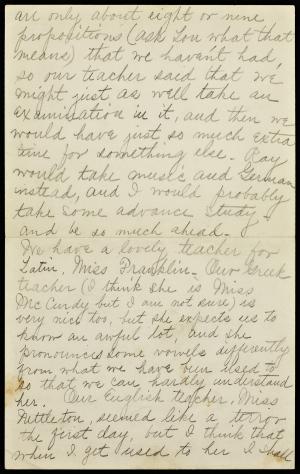 are only about eight or nine
propositions (ask Lou what that
means) that we havent had,
so our teacher said that we
might just as well take an
examination in it, and then we
would have just so much extra
time for something else. Ray
would take music and German
instead, and I would probably
take some advance study
and be so much ahead.
We have a lovely teacher for
Latin, Miss Franklin. Our Greek
teacher (I think she is Miss
McCurdy but I am not sure) is
very nice too, but she expects us to
know an awful lot, and she
pronounces some vowels differently
from what we have been used to
so that we can hardly understand
her. Our English teacher, Miss
Nettleton, seemed like a terror
the first day, but I think that
when I get used to her I shall